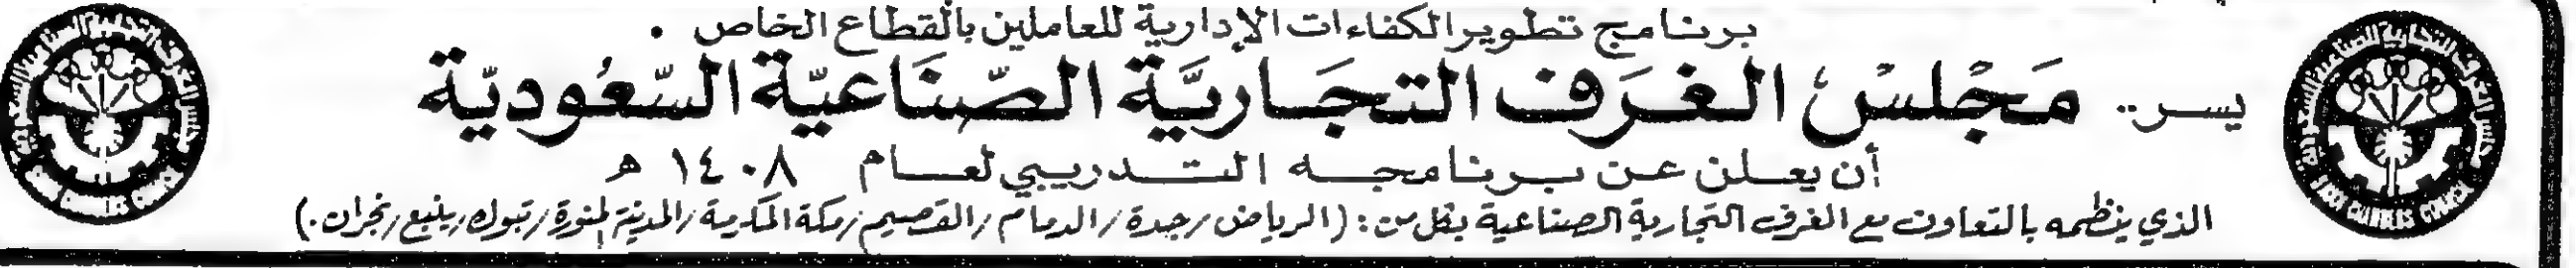 برنامج تطوير الكفاءات الإدارية للعاملين بالقطاع الخاص .
يسر.. مَجْلسْ الغرَف التجَاريَّة الصّنَاعيّة السّعُوديّة
أن يعلن عن برنامجه التدريبي لعام ١٤٠٨ ه
الذي ينظمه بالتعاون مع الغرف التجارية الصناعية بكل من : (الرياض / جدة / الدمام / القصيم / مكة المكرمة / المدينة المنورة / تبوك / ينبع / نجران .)